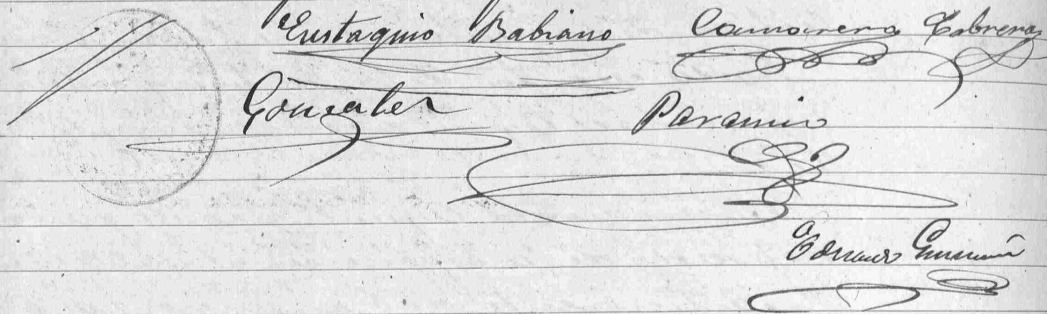 Eustaquio Babiano Camarero Cabrera
Gonzalez Paramio
Guzmán